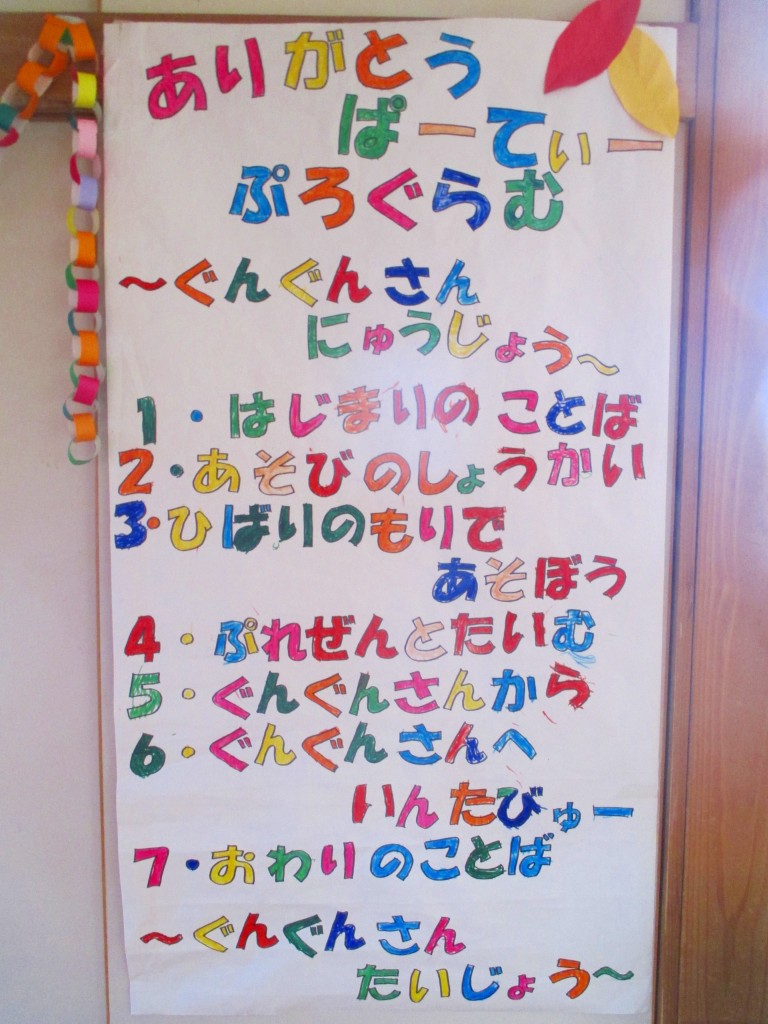 ありがとう
ぱーてぃー
ぷろぐらむ
～ぐんぐんさん
にゅうじょう～
1・はじまりのことば
2・あそびのしょうかい
3・ひばりのもりで
あそぼう
4・ぷれぜんとたいむ
5・ぐんぐんさんから
6・ぐんぐんさんへ
いんたびゅー
7・おわりのことば
～ぐんぐんさん
たいじょう～